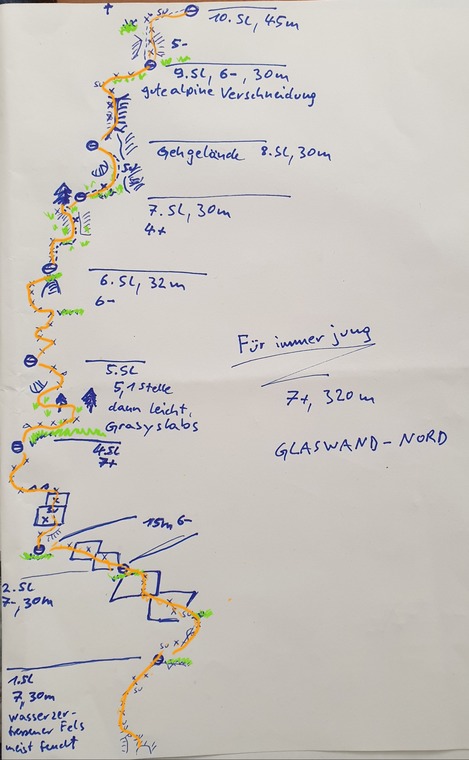 SU
10.SL, 45m
5-
9.SL, 6-, 30m
gute alpine Verschneidung
SU
Gehgelände 8.SL, 30m
SU
7.SL, 30m
4+
6.SL, 32m
6-
Für immer jung
7+, 320m
GLASWAND-NORD
5.SL
5, 1 Stelle
dann leicht,
Grasyslabs
4.SL
7+
SU
15m 6-
2.SL
7-, 30m
SU
SU
1.SL
7, 30m
wasserzer-
fressener Fels
meist feucht
SU